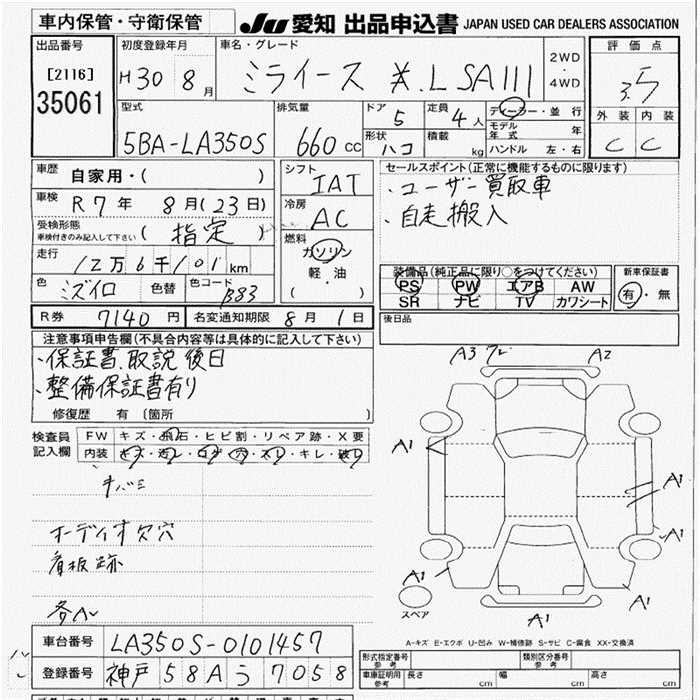 車内保管・守衛保管
JU 愛知 出品申込書 JAPAN USED CAR DEALERS ASSOCIATION
出品番号
[2116]
35061
初度登録年月
H30 8月
車名・グレード
ミライース L SAIII
2WD
・
4WD
評価点
3.5
外装 内装
C C
型式
5BA-LA350S
排気量
660 cc
ドア
5
定員
4人
形状
ハコ
積載
kg
ディーラー・並行
モデル年式 年
ハンドル 左・右
車歴
自家用・( )
車検
R7年 8月(23日)
受検形態
車検付きのみ記入して下さい
(指定)
走行
12万6千101km
色
ミズイロ
色替
色コード
B83
シフト
IAT
冷房
AC
燃料
ガソリン
軽・油
( )
セールスポイント(正常に機能するものに限ります)
・ユーザー買取車
・自走搬入
装備品(純正品に限り○をつけてください)
PS PW エアB AW
SR ナビ TV カワシート
新車保証書
有・無
R券 7140円 名変通知期限 8月1日
後日品
注意事項申告欄(不具合内容等は具体的に記入して下さい)
・保証書、取説 後日
・整備保証書有り
修復歴 有 〔箇所 〕
検査員
記入欄
FW キズ・飛石・ヒビ割・リペア跡・X要
内装 キズ・汚レ・コゲ・穴・スレ・キレ・破レ
キバミ
オーディオ欠穴
看板跡
各A
A3 A2
A1
A1
A1
A1
A1
A1
スペア
A-キズ E-エクボ U-凹み W-補修跡 S-サビ C-腐食 XX-交換済
車台番号 LA350S-0101457
登録番号 神戸 58A う 7058
形式指定番号
参考
類別区分番号
参考
車庫証明用
参考
長さ cm
幅 cm
高さ cm